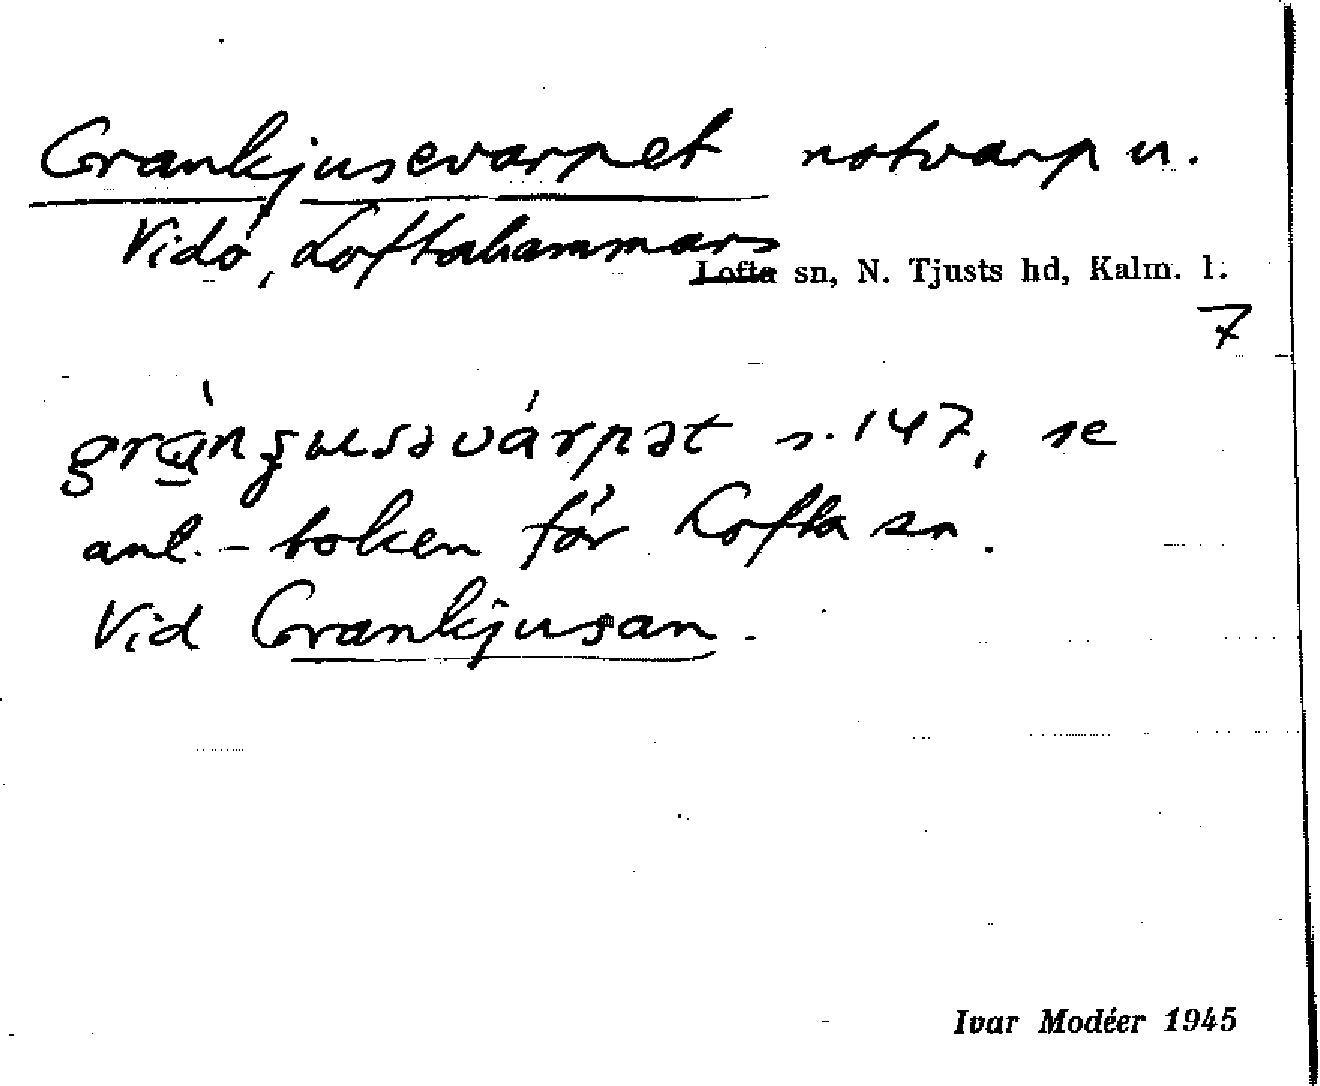 Grankjusevarpet notvarp u.
Vidö, Loftahammars
Lofta sn, N. Tjusts hd, Kalm. l.
7
s. 147, se
ant.-boken för Lofta sn.
Vid Grankjusan.
Ivar Modéer 1945